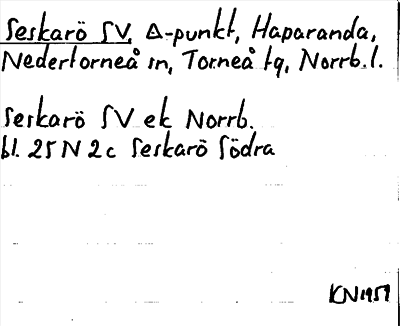 Seskarö SV, Δ-punkt, Haparanda,
Nedertorneå sn, Torneå tg, Norrb.l.
Seskarö SV ek Norrb.
bl. 25 N 2 c Seskarö Södra
KN 1959